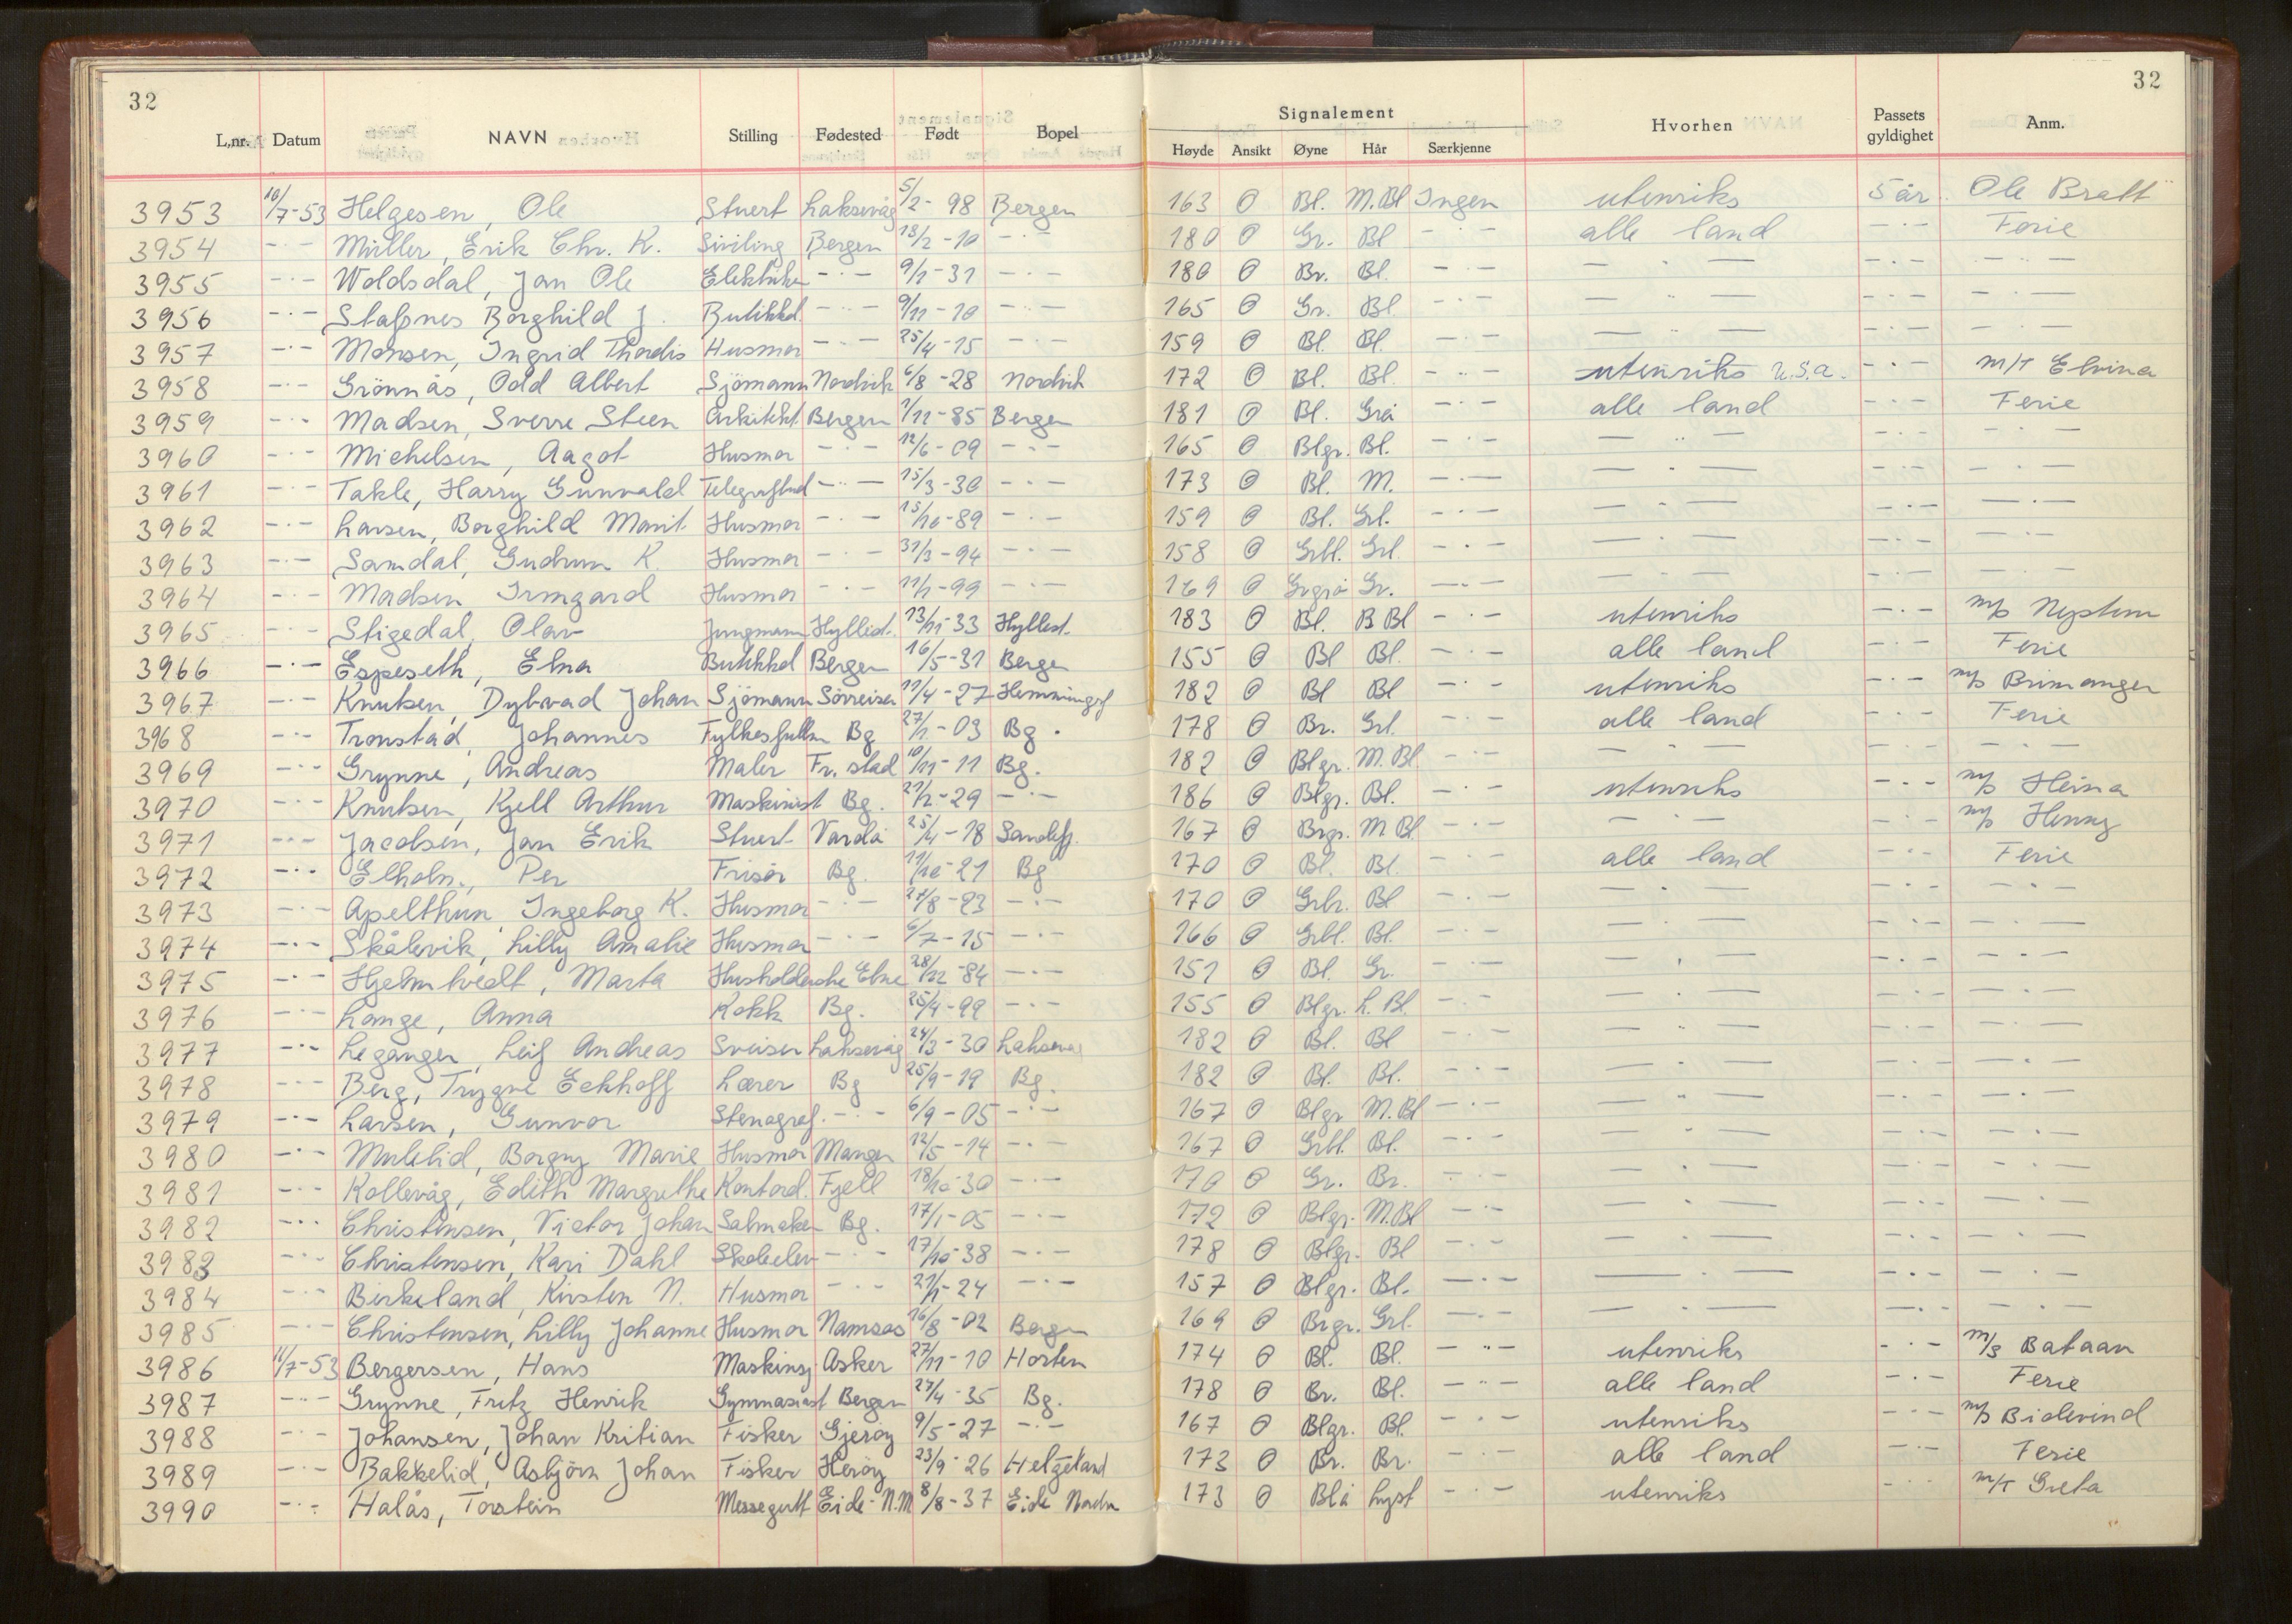 32
32
Signalement
L.nr. Datum NAVN Stilling Fødested Født Bopel Høyde Ansikt Øyne Hår Særkjenne Hvorhen Passets gyldighet Anm.
3953 10/7-53 Helgesen, Ole Stuert Laksevåg 5/2-98 Bergen 163 O Bl. M.Bl Ingen utenriks 5 år Ole Bratt
3954 -·- Müller, Erik Chr. K. Siviling Bergen 18/2-10 -·- 180 O Gr. Bl -·- alle land -·- Ferie
3955 -·- Woldsdal, Jan Ole Elektriker -·- 9/1-31 -·- 180 O Br. Bl. -·- -"- -·- -·-
3956 -·- Stafsnes Borghild J. Butikkd. -·- 9/11-10 -·- 165 O Gr. Bl. -·- -"- -·- -·-
3957 -·- Monsen, Ingrid Thordis Husmor -·- 25/4-15 -·- 159 O Bl. Bl. -·- -"- -·- -·-
3958 -·- Grönnås, Odd Albert Sjömann Nordvik 6/8-28 Nordvik 172 O Bl. Bl. -·- utenriks U.S.A. -·- M/T Elvina
3959 -·- Madsen, Sverre Steen Arkitekt Bergen 1/11-85 Bergen 181 O Bl. Grå -·- alle land -·- Ferie
3960 -·- Michelsen, Aagot Husmor -·- 12/6-09 -·- 165 O Blgr. Bl. -·- -"- -·- -·-
3961 -·- Takle, Harry Gunvald -·- 15/3-30 -·- 173 O Bl. M. -·- -"- -·- -·-
3962 -·- Larsen, Borghild Marit Husmor -·- 15/10-89 -·- 159 O Bl. Grl. -·- -"- -·- -·-
3963 -·- Samdal, Gudrun K. Husmor -·- 31/3-94 -·- 158 O Grbl. Grl. -·- -·- -·- -·-
3964 -·- Madsen, Irmgard Husmor -·- 11/1-99 -·- 169 O Grgrå Gr. -·- -·- -·- -·-
3965 -·- Stigedal, Olav Jungmann Hyllest. 13/11-33 Hyllest. 183 O Bl. B Bl -·- utenriks -·- M/S Neptun
3966 -·- Espeseth, Elna Butikkd Bergen 16/5-31 Bergen 155 O Bl Bl. -·- alle land -·- Ferie
3967 -·- Knutsen, Dybvad Johan Sjömann Sörreisen 11/4-27 182 O Bl Bl -·- utenriks -·- M/S Brimanger
3968 -·- Tronstad, Johannes Fylkesfullm Bg 27/1-03 Bg. 178 O Br. Grl. -·- alle land -·- Ferie
3969 -·- Grynne, Andreas Maler Fr.stad 10/11-11 Bg. 182 O Blgr. M.Bl -·- -"- -·- -·-
3970 -·- Knutsen, Kjell Arthur Maskinist Bg. 21/2-29 -·- 186 O Blgr. Bl. -·- utenriks -·- M/S Heina
3971 -·- Jacobsen, Jan Erik Stuert Vardö 25/4-18 Sandefj. 167 O Brgr. M Bl -·- -·- -·- M/S Henny
3972 -·- Elholm, Per Frisör Bg. 11/10-21 Bg 170 O Bl. Bl. -·- alle land -·- Ferie
3973 -·- Apelthun Ingeborg K. Husmor -·- 27/8-23 -·- 170 O Grbr. Bl -·- -"- -·- -·-
3974 -·- Skålevik, Lilly Amalie Husmor -·- 6/7-15 -·- 166 O Grbl. Bl. -·- -·- -·- -·-
3975 -·- Hjelmtvedt, Marta Husholderske Etne 28/12-84 -·- 151 O Bl. Gr. -·- -·- -·- -·-
3976 -·- Lange, Anna Kokk Bg. 25/4-99 -·- 155 O Blgr. L.Bl. -·- -·- -·- -·-
3977 -·- Leganger, Leif Andreas Sveiser Laksevåg 24/3-30 Laksevåg 182 O Bl. Bl -·- -"- -·- -·-
3978 -·- Berg, Trygve Eckhoff Lærer Bg 25/9-19 Bg. 182 O Bl. Bl. -·- -·- -·- -·-
3979 -·- Larsen, Gunvor Stenograf. -·- 6/9-05 -·- 167 O Blgr M.Bl -·- -·- -·- -·-
3980 -·- Mulelid, Borgny Marie Husmor Manger 12/5-14 -·- 167 O Grbl. Bl. -·- -"- -·- -·-
3981 -·- Kollevåg, Edith Margrethe Kontord. Fjell 18/10-30 -·- 170 O Gr. Br. -·- -"- -·- -·-
3982 -·- Christensen, Victor Johan Salmaker Bg. 17/1-05 -·- 172 O Blgr. M.Bl -·- -"- -·- -·-
3983 -·- Christensen, Kari Dahl Skoleelev -·- 17/10-38 -·- 178 O Blgr. Bl -·- -"- -·- -·-
3984 -·- Birkeland, Kirsten N. Husmor -·- 21/1-24 -·- 157 O Blgr. Bl. -·- -·- -·- -·-
3985 -·- Christensen, Lilly Johanne Husmor Namsos 16/8-02 Bergen 169 O Brgr. Grl. -·- -·- -·- -·-
3986 11/7-53 Bergersen, Hans Maskinsj. Asker 27/11-10 Horten 174 O Bl. Bl. -"- utenriks -·- M/S Bataan
3987 -·- Grynne, Fritz Henrik Gymnasiast Bergen 27/4-35 Bg. 178 O Br. Bl. -"- alle land -·- Ferie
3988 -·- Johansen, Johan Kritian Fisker Gjeröy 9/5-27 -·- 167 O Blgr. Bl. -·- utenriks -·- M/S Bidevind
3989 -·- Bakkelid, Asbjörn Johan Fisker Heröy 23/9-26 Helgeland 173 O Br. Br. -·- alle land -·- Ferie
3990 -·- Halås, Torstein Messegutt Eide-N.M 8/8-37 Eide Nordm 173 O Blå Lyst -·- utenriks -·- M/T Greta